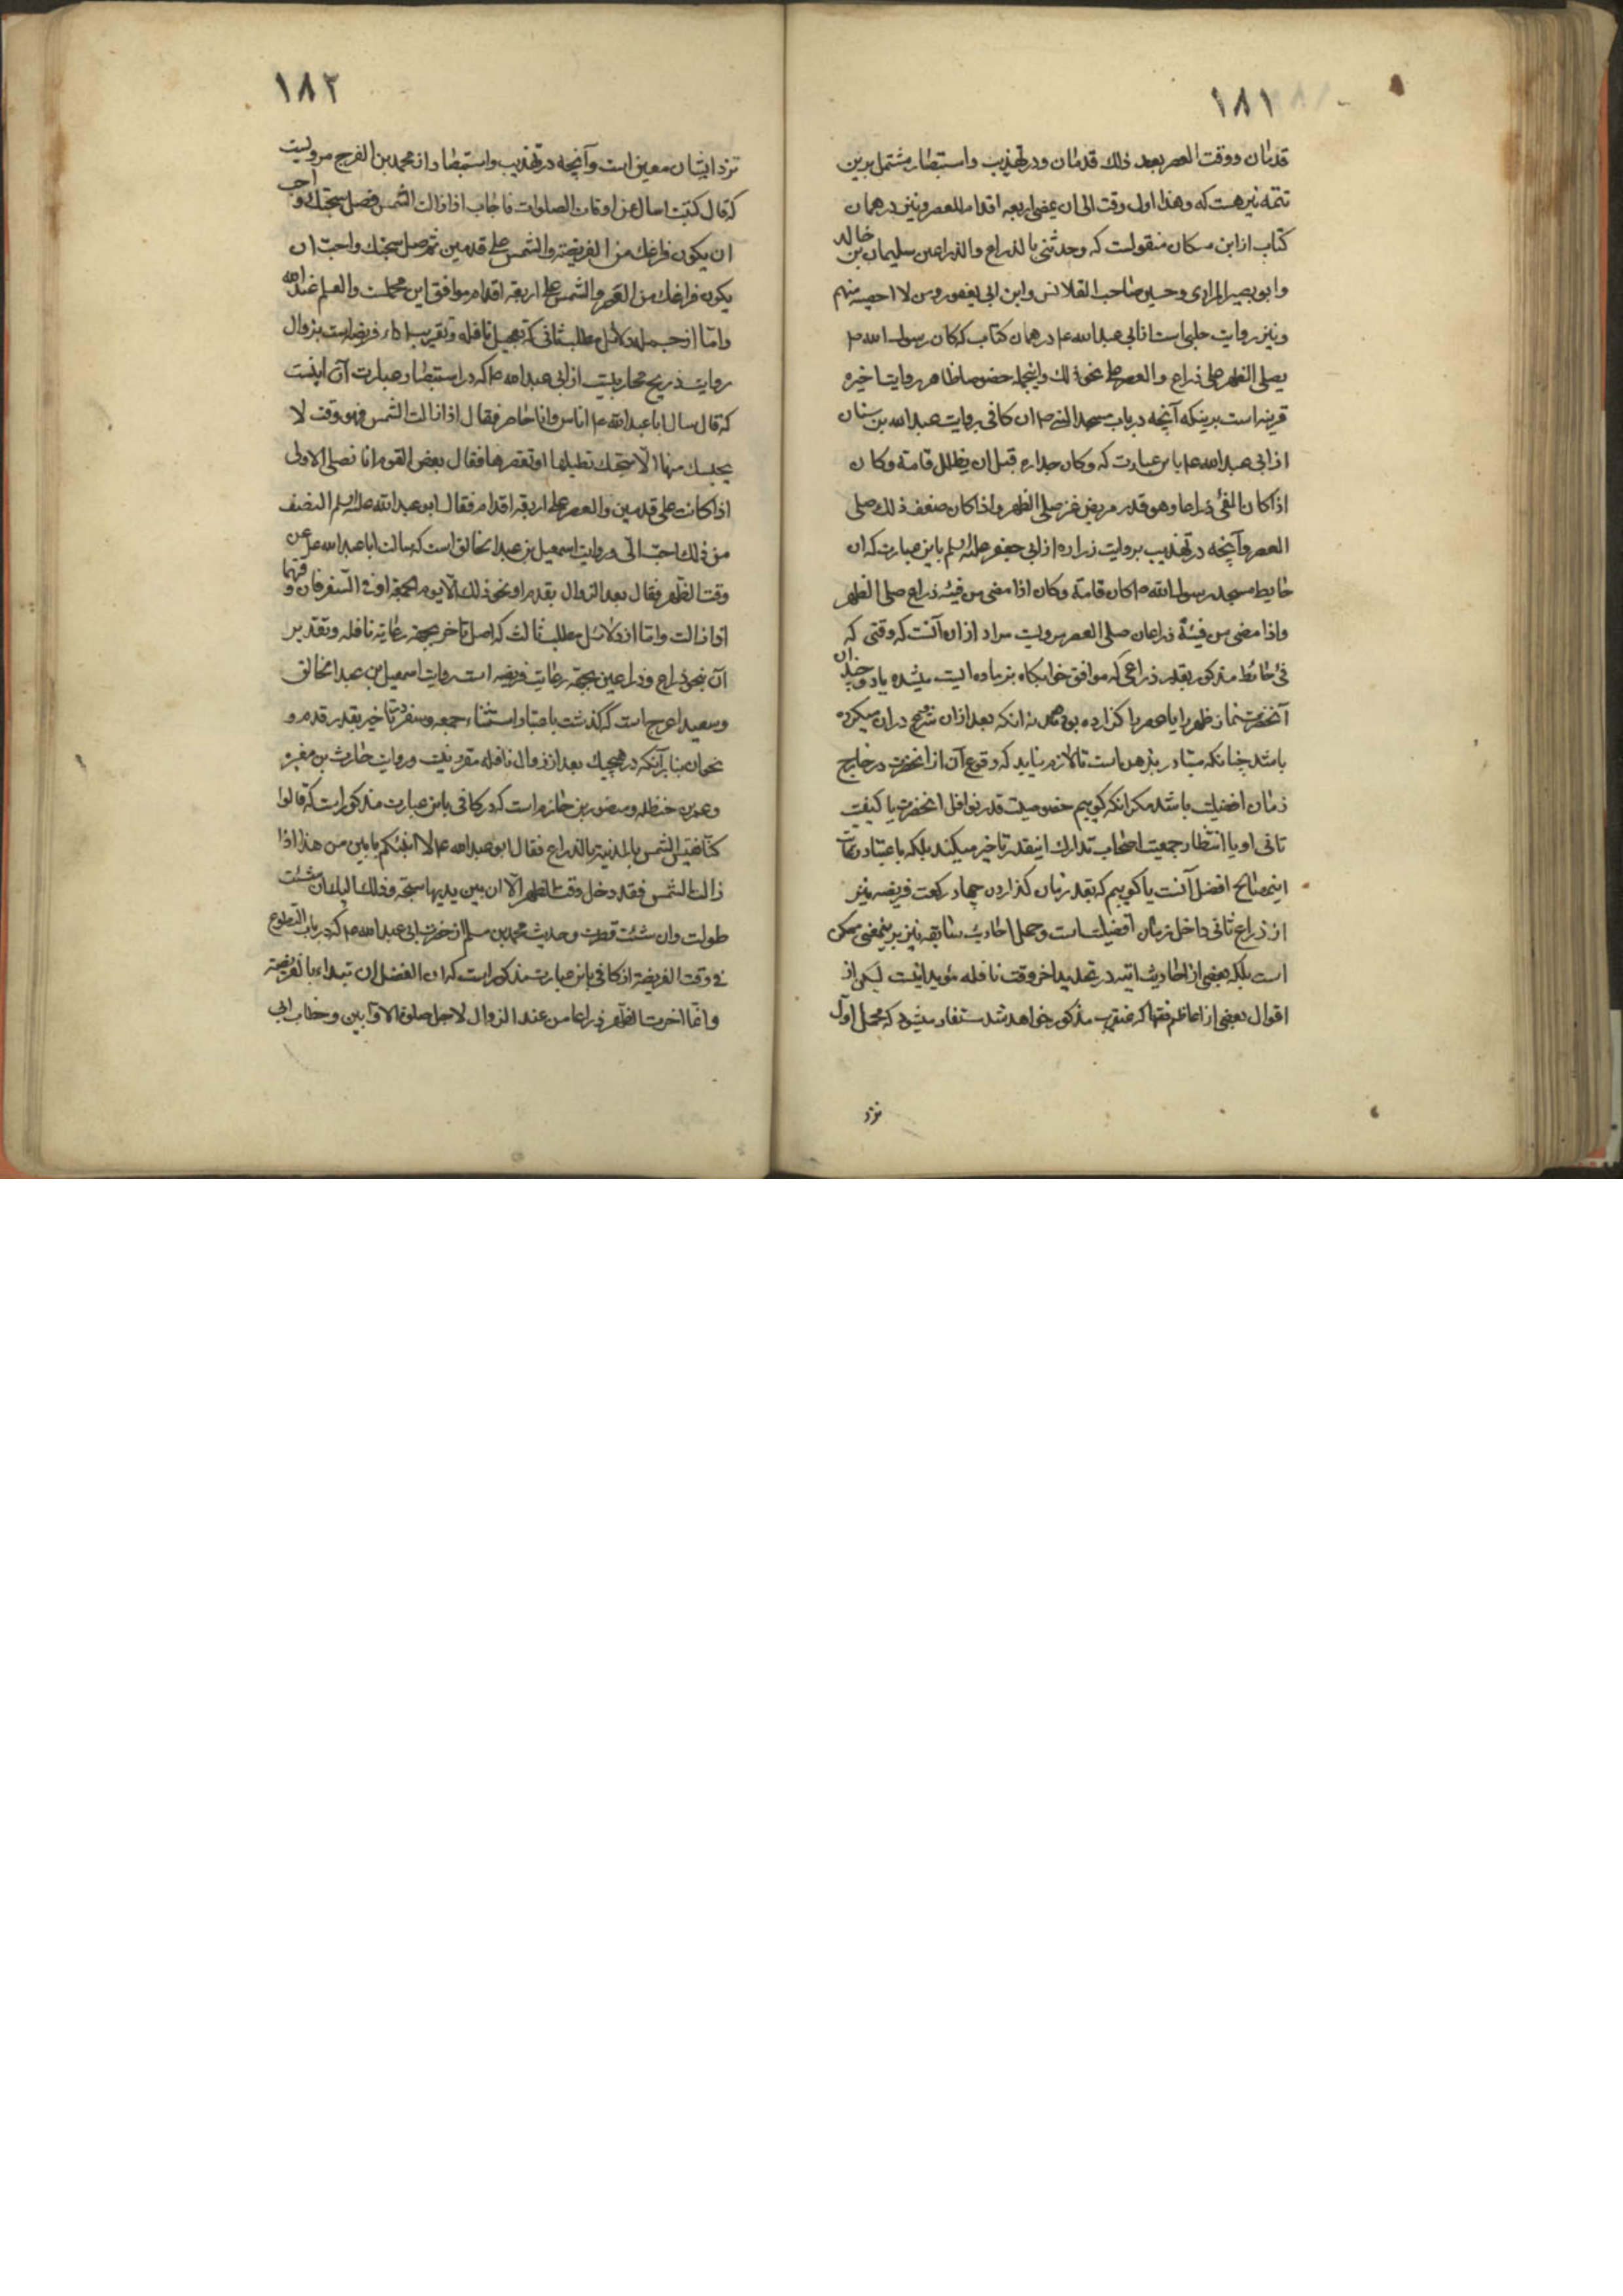 ١٨١
قدمان ووقت العصر بعد ذلك قدمان ودر تهذيب واستبصار مشتمل برين
تتمه نيز هست كه وهذا اول وقت الى ان يمضى اربعه اقدام للعصر ونيز در همان
كتاب از ابن مسكان منقولست كه وحدثنى بالذراع والذراعين سليمان بن خالد
وابو بصير المرادى وحسين صاحب القلانس وابن ابى يعفور ومن لا احصيه منهم
ونيز روايت حلبى است از ابى عبد الله ع در همان كتاب كه كان رسول الله ص
يصلى الظهر على ذراع والعصر على نحو ذلك واينجمله خصوصا ظاهر روايت اخيره
قرينه است برينكه آنچه در باب مسجد النبى ص از كافى بروايت عبد الله بن سنان
از ابى عبد الله ع باين عبارت كه وكان جداره قبل ان يظلل قامة وكان
اذا كان الفئ ذراعا وهو قدر مربض عنز صلى الظهر واذا كان ضعف ذلك صلى
العصر وآنچه در تهذيب بروايت زراره از ابى جعفر عليه السلم باين عبارت كه ان
حايط مسجد رسول الله ص كان قامة وكان اذا مضى من فيئه ذراع صلى الظهر
واذا مضى من فيئه ذراعان صلى العصر مرويست مراد از ان آنست كه وقتى كه
فئ حائط مذكور بقدر ذراعى كه موافق خوابگاه بز ماده اليست ميشده يا دو چندان
آنحضرت نماز ظهر را يا عصر را گذارده بوده نه انكه بعد ازان شروع دران ميكرده
باشد چنانكه متبادر بذهن است تا لازم نيايد كه وقوع آن از انحضرت در خارج
زمان افضليت باشد مگر انكه گوييم خصوصيت قدر نوافل انحضرت يا كيفيت
تانى او يا انتظار جمعيت اصحاب تدارك اينقدر تاخير ميكند بلكه باعتبار رعايت
اينمصالح افضل آنست يا گوييم كه بقدر زمان گذاردن چهار ركعت فريضه نيز
از ذراع ثانى داخل زمان افضليت است وحمل احاديث سابقه نيز برينمعنى ممكن
است بلكه بعضى از احاديث اتيه در تحديد اخر وقت نافله مؤيد اينست ليكن از
اقوال بعضى از اعاظم فقها كه عنقريب مذكور خواهد شد مستفاد ميشود كه محمل اول
نزد
١٨٢
نزد ايشان معين است وآنچه در تهذيب واستبصار از محمد بن الفرج مرويست
كه قال كتبت اسال عن اوقات الصلوات فاجاب اذا زالت الشمس فصل سبحتك واحب
ان يكون فراغك من الفريضة والشمس على قدمين ثم صل سبحتك واحب ان
يكون فراغك من العصر والشمس على اربعة اقدام موافق اين محملست والعلم عند الله
واما از جمله دلائل مطلب ثانى كه تعجيل نافله وتقريب اداء فريضه است بزوال
روايت ذريح محاربيست از ابى عبد الله ع كه در استبصار عبارت آن اينست
كه قال سال ابا عبد الله ع اناس وانا حاضر فقال اذا زالت الشمس فهو وقت لا
يحبسك منها الا سبحتك تطيلها او تقصرها فقال بعض القوم انا نصلى الاولى
اذا كانت على قدمين والعصر على اربعة اقدام فقال ابو عبد الله عليه السلم النصف
من ذلك احب الى وروايت اسمعيل بن عبد الخالق است كه سالت ابا عبد الله ع عن
وقت الظهر فقال بعد الزوال بقدم او نحو ذلك الا يوم الجمعة او فى السفر فان وقتها
اذا زالت واما از دلائل مطلب ثالث كه اصل تاخر بجهة رعاية نافله وتقدير
آن بنحو ذراع وذراعين بجهة رعايت فريضه است روايت اسمعيل بن عبد الخالق
وسعيد اعرج است كه گذشت باعتبار استثناء جمعه وسفر در تاخير بقدر قدم و
نحو ان بنابر آنكه در هيچيك بعد از زوال نافله مقرر نيست وروايت حارث بن مغيره
وعمر بن حنظله ومنصور بن حازم است كه در كافى باين عبارت مذكور است كه قالوا
كنا نقيس الشمس بالمدينة بالذراع فقال ابو عبد الله ع الا انبئكم بابين من هذا اذا
زالت الشمس فقد دخل وقت الظهر الا ان بين يديها سبحة وذلك اليك ان شئت
طولت وان شئت قصرت وحديث محمد بن مسلم از حضرت ابى عبد الله ع كه در باب التطوع
فى وقت الفريضة از كافى باين عبارت مذكور است كه ان الفضل ان تبداء بالفريضة
وانما اخرت الظهر ذراعا من عند الزوال لاجل صلوة الاوابين وخطاب ابى